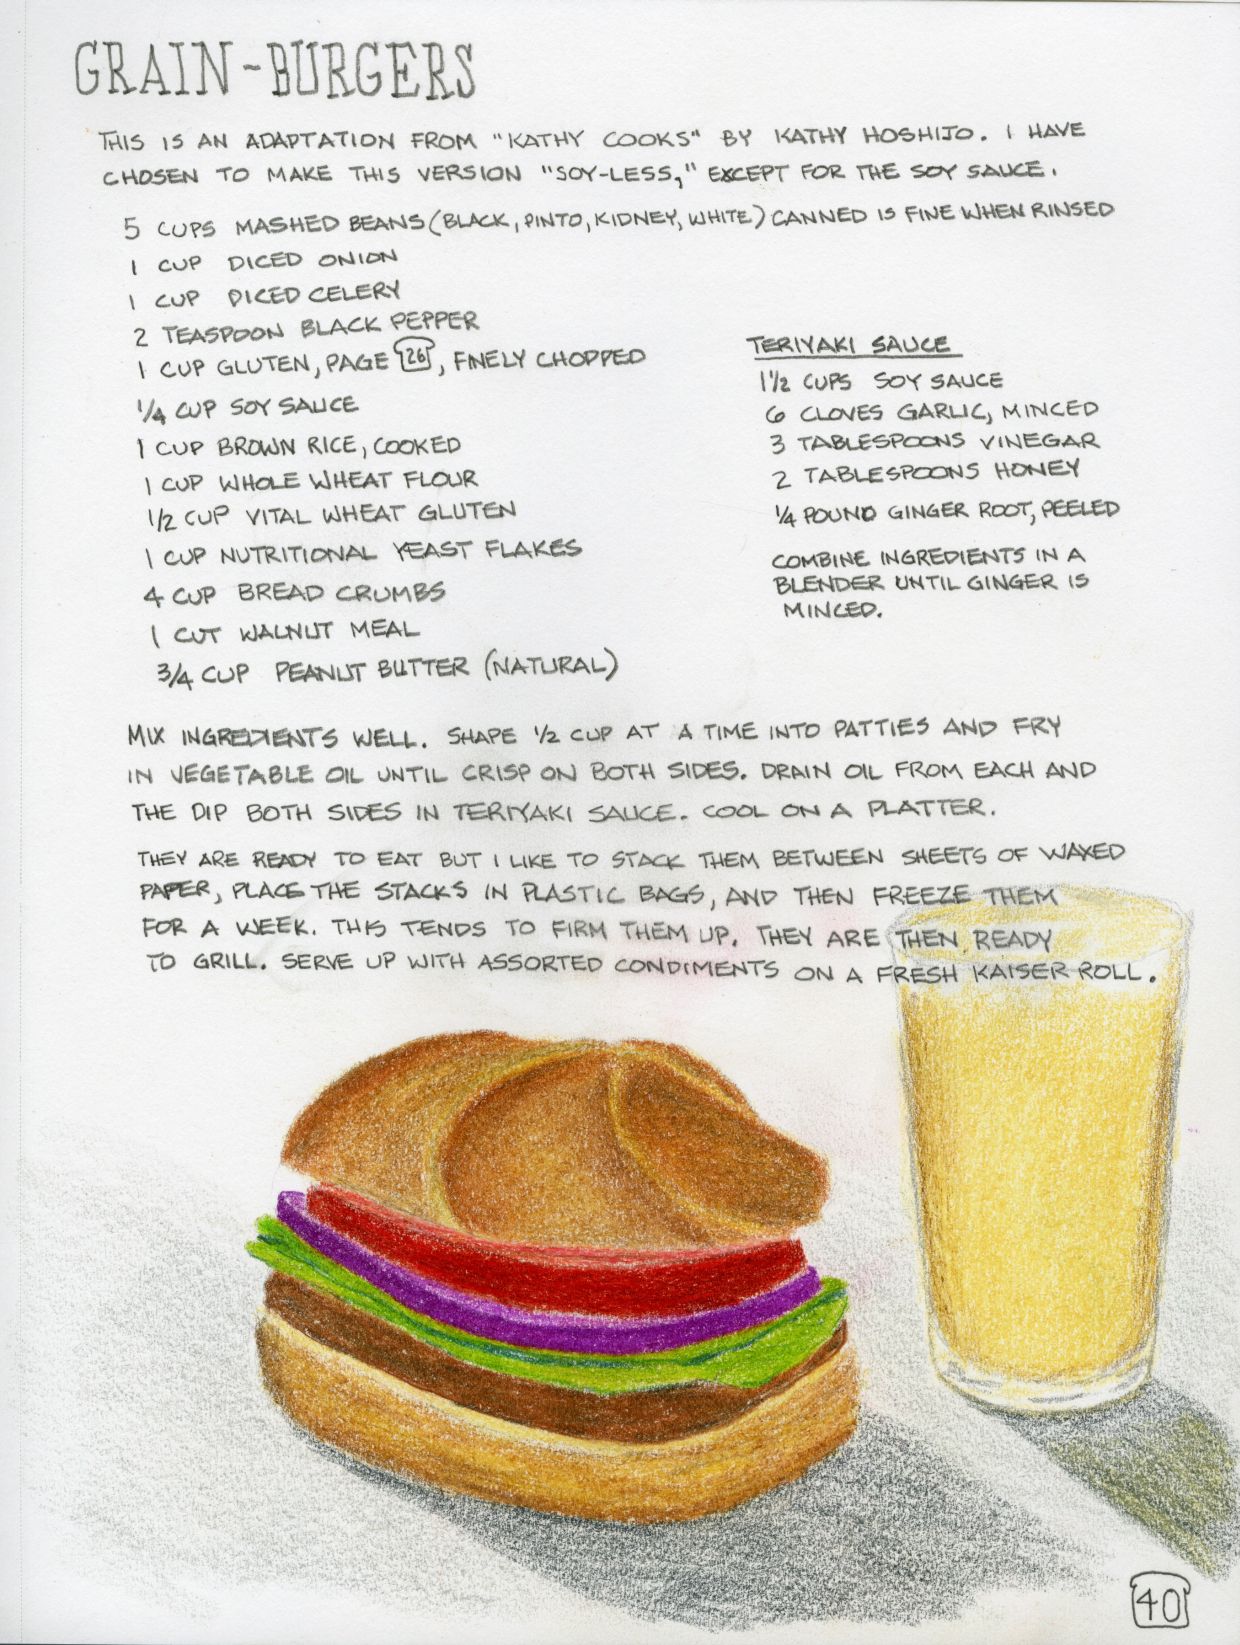 GRAIN-BURGERS
THIS IS AN ADAPTATION FROM "KATHY COOKS" BY KATHY HOSHIJO. I HAVE
CHOSEN TO MAKE THIS VERSION "SOY-LESS," EXCEPT FOR THE SOY SAUCE.
5 CUPS MASHED BEANS (BLACK, PINTO, KIDNEY, WHITE) CANNED IS FINE WHEN RINSED
1 CUP DICED ONION
1 CUP DICED CELERY
2 TEASPOON BLACK PEPPER
1 CUP GLUTEN, PAGE 26, FINELY CHOPPED
1/4 CUP SOY SAUCE
1 CUP BROWN RICE, COOKED
1 CUP WHOLE WHEAT FLOUR
1/2 CUP VITAL WHEAT GLUTEN
1 CUP NUTRITIONAL YEAST FLAKES
4 CUP BREAD CRUMBS
1 CUT WALNUT MEAL
3/4 CUP PEANUT BUTTER (NATURAL)
TERIYAKI SAUCE
1 1/2 CUPS SOY SAUCE
6 CLOVES GARLIC, MINCED
3 TABLESPOONS VINEGAR
2 TABLESPOONS HONEY
1/4 POUND GINGER ROOT, PEELED
COMBINE INGREDIENTS IN A
BLENDER UNTIL GINGER IS
MINCED.
MIX INGREDIENTS WELL. SHAPE 1/2 CUP AT A TIME INTO PATTIES AND FRY
IN VEGETABLE OIL UNTIL CRISP ON BOTH SIDES. DRAIN OIL FROM EACH AND
THE DIP BOTH SIDES IN TERIYAKI SAUCE. COOL ON A PLATTER.
THEY ARE READY TO EAT BUT I LIKE TO STACK THEM BETWEEN SHEETS OF WAXED
PAPER, PLACE THE STACKS IN PLASTIC BAGS, AND THEN FREEZE THEM
FOR A WEEK. THIS TENDS TO FIRM THEM UP. THEY ARE THEN READY
TO GRILL. SERVE UP WITH ASSORTED CONDIMENTS ON A FRESH KAISER ROLL.
40